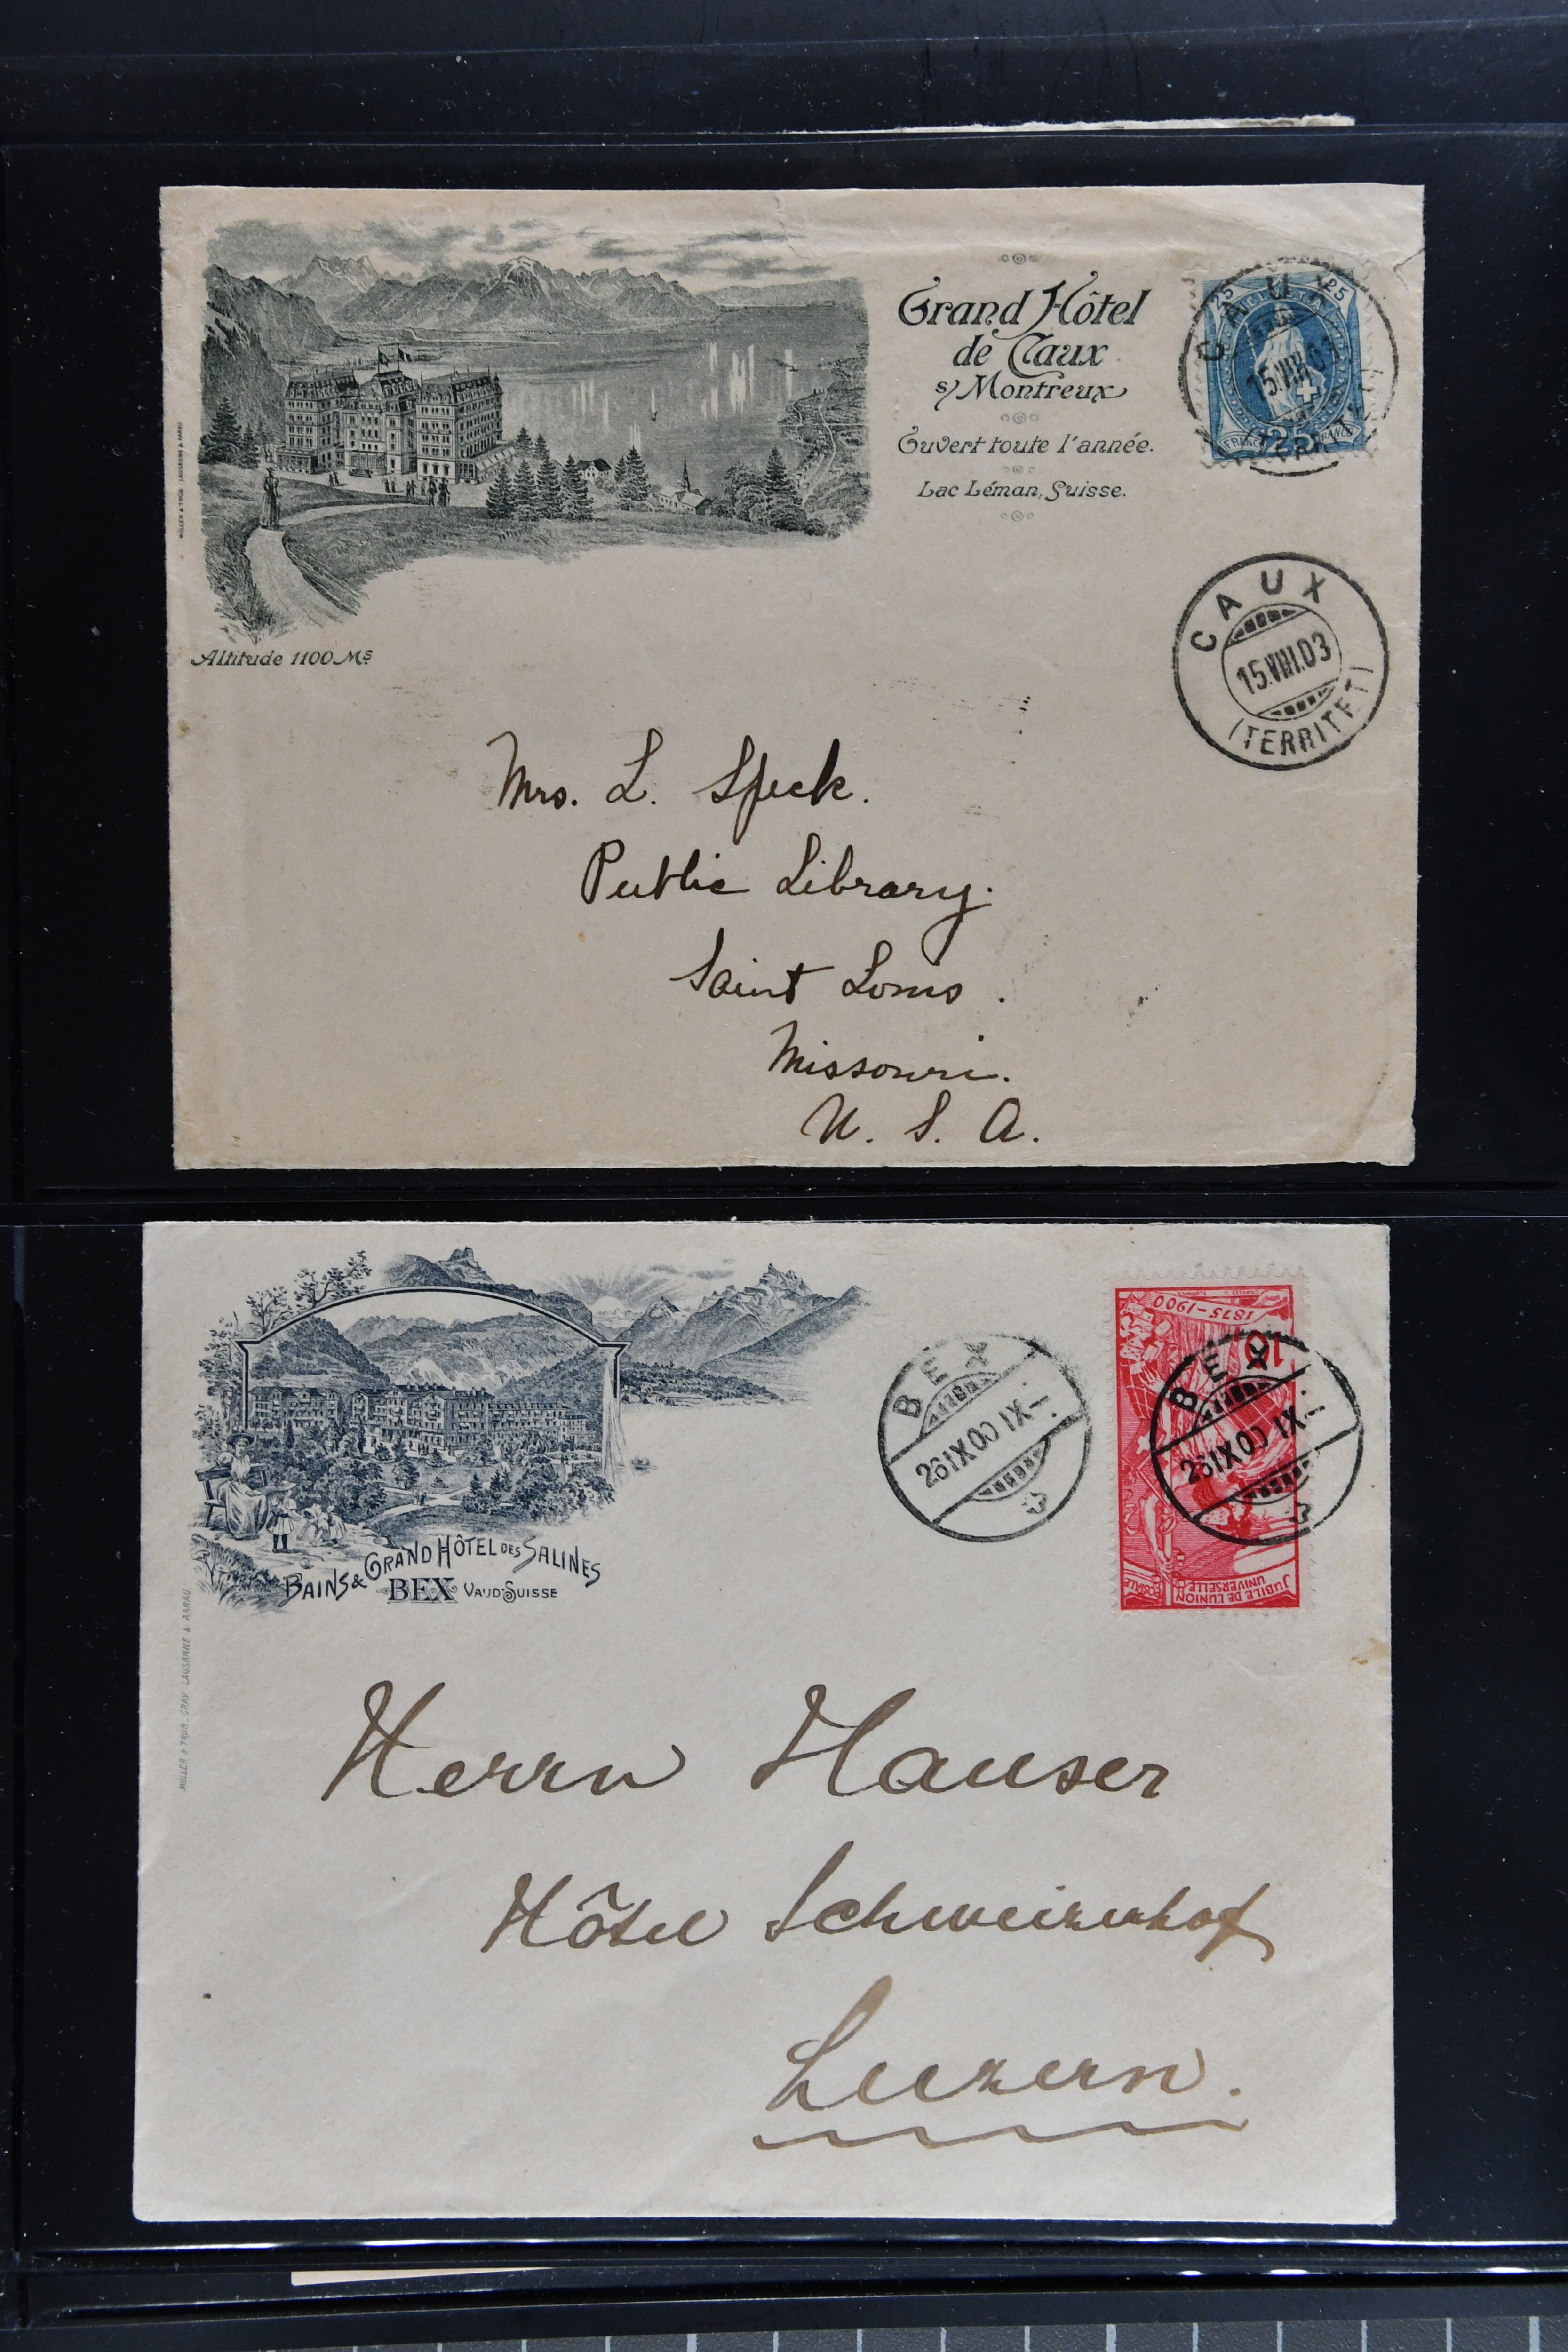 Grand Hôtel
de Caux
s/Montreux
Ouvert toute l'année.
Lac Léman, Suisse.
Altitude 1100 Ms
MÜLLER & TRÜB, LAUSANNE & AARAU
25 HELVETIA 25
FRANCO 25 FRANCO
CAUX
15.VIII.03
CAUX
15.VIII.03
(TERRITET)
Mrs. L. Speck.
Public Library.
Saint Louis.
Missouri.
U. S. A.
BAINS & GRAND HÔTEL DES SALINES
BEX VAUD-SUISSE
MÜLLER & TRÜB, GRAV. LAUSANNE & AARAU
BEX
26 IX 00 IX-
1875-1900
10
BEX
26 IX 00 IX-
JUBILÉ DE L'UNION
UNIVERSELLE POSTALE
Herrn Hauser
Hôtel Schweizerhof
Luzern.